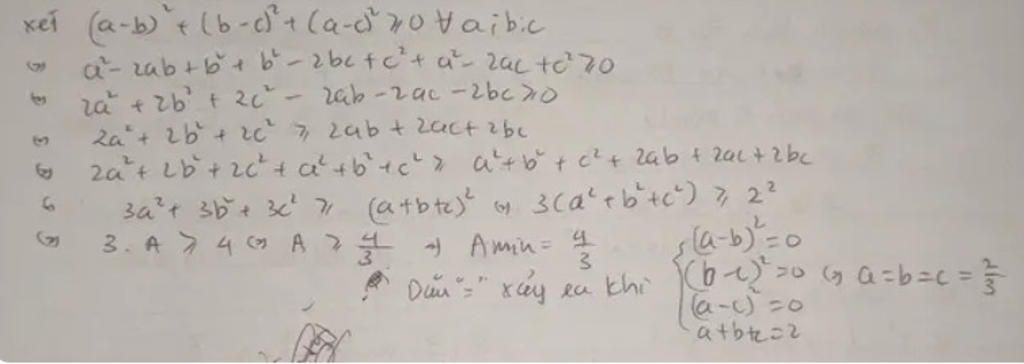 xét (a-b)² + (b-c)² + (a-c)² ⩾ 0 ∀ a; b; c
⇔ a² - 2ab + b² + b² - 2bc + c² + a² - 2ac + c² ⩾ 0
⇔ 2a² + 2b² + 2c² - 2ab - 2ac - 2bc ⩾ 0
⇔ 2a² + 2b² + 2c² ⩾ 2ab + 2ac + 2bc
⇔ 2a² + 2b² + 2c² + a² + b² + c² ⩾ a² + b² + c² + 2ab + 2ac + 2bc
⇔ 3a² + 3b² + 3c² ⩾ (a+b+c)² ⇔ 3(a² + b² + c²) ⩾ 2²
⇔ 3. A ⩾ 4 ⇔ A ⩾ 4/3 ⇒ Amin = 4/3
Dấu "=" xảy ra khi { (a-b)² = 0
(b-c)² = 0 ⇔ a = b = c = 2/3
(a-c)² = 0
a+b+c = 2